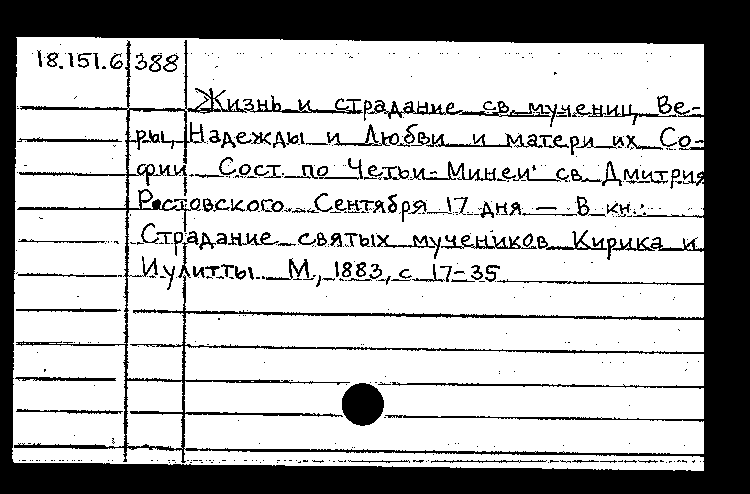 18.151.6 388
Жизнь и страдание св. мучениц Ве-
ры, Надежды и Любви и матери их Со-
фии. Сост. по Четьи-Минеи св. Дмитрия
Ростовского. Сентября 17 дня — В кн.:
Страдание святых мучеников Кирика и
Иулитты. М., 1883, с. 17-35